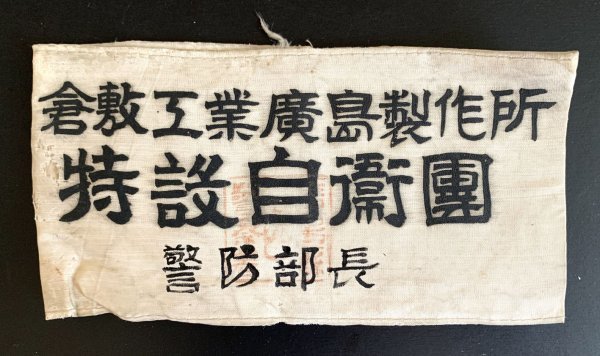 倉敷工業廣島製作所
特設自衞團
警防部長